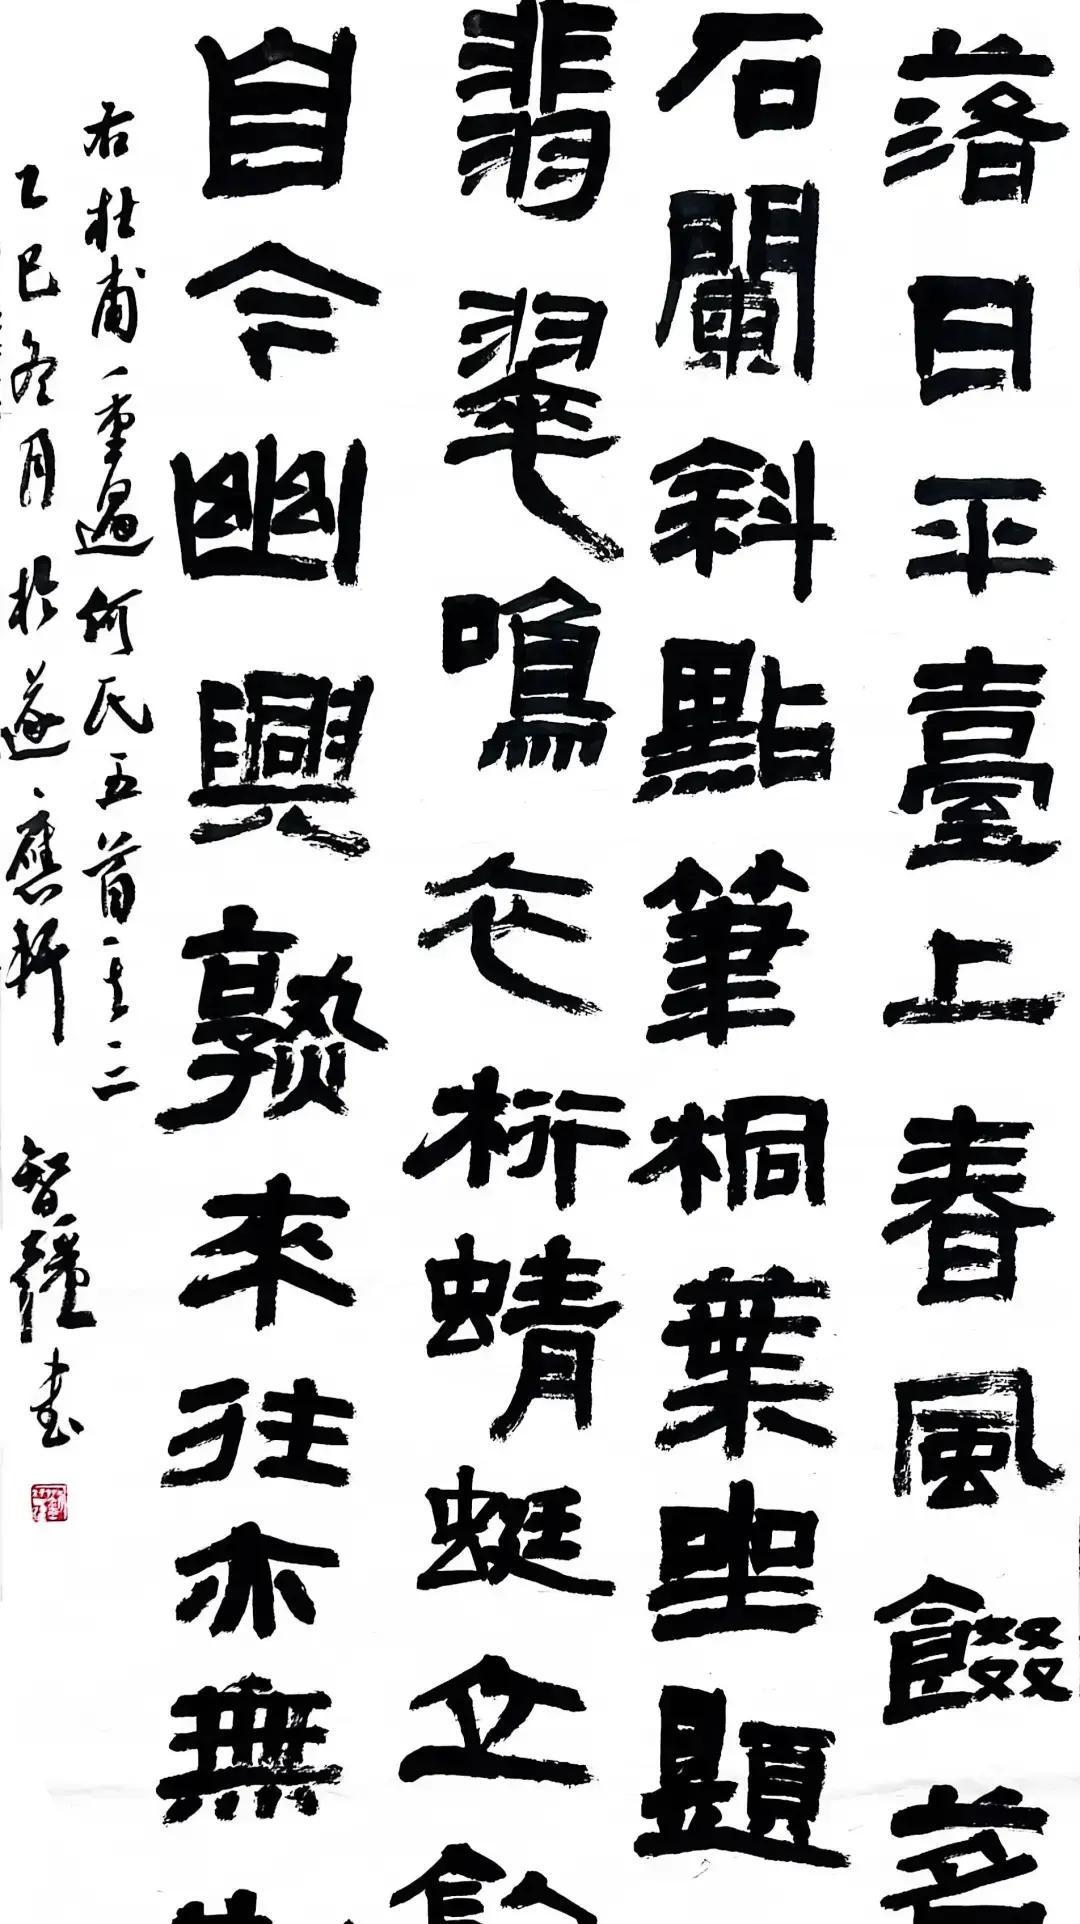 落日平臺上春風餟茗
石闌斜點筆桐葉坐題
翡翠鳴衣桁蜻蜓立釣
自今幽興熟來往亦無
右杜甫重過何氏五首其三
乙巳冬月於遂應軒
智書